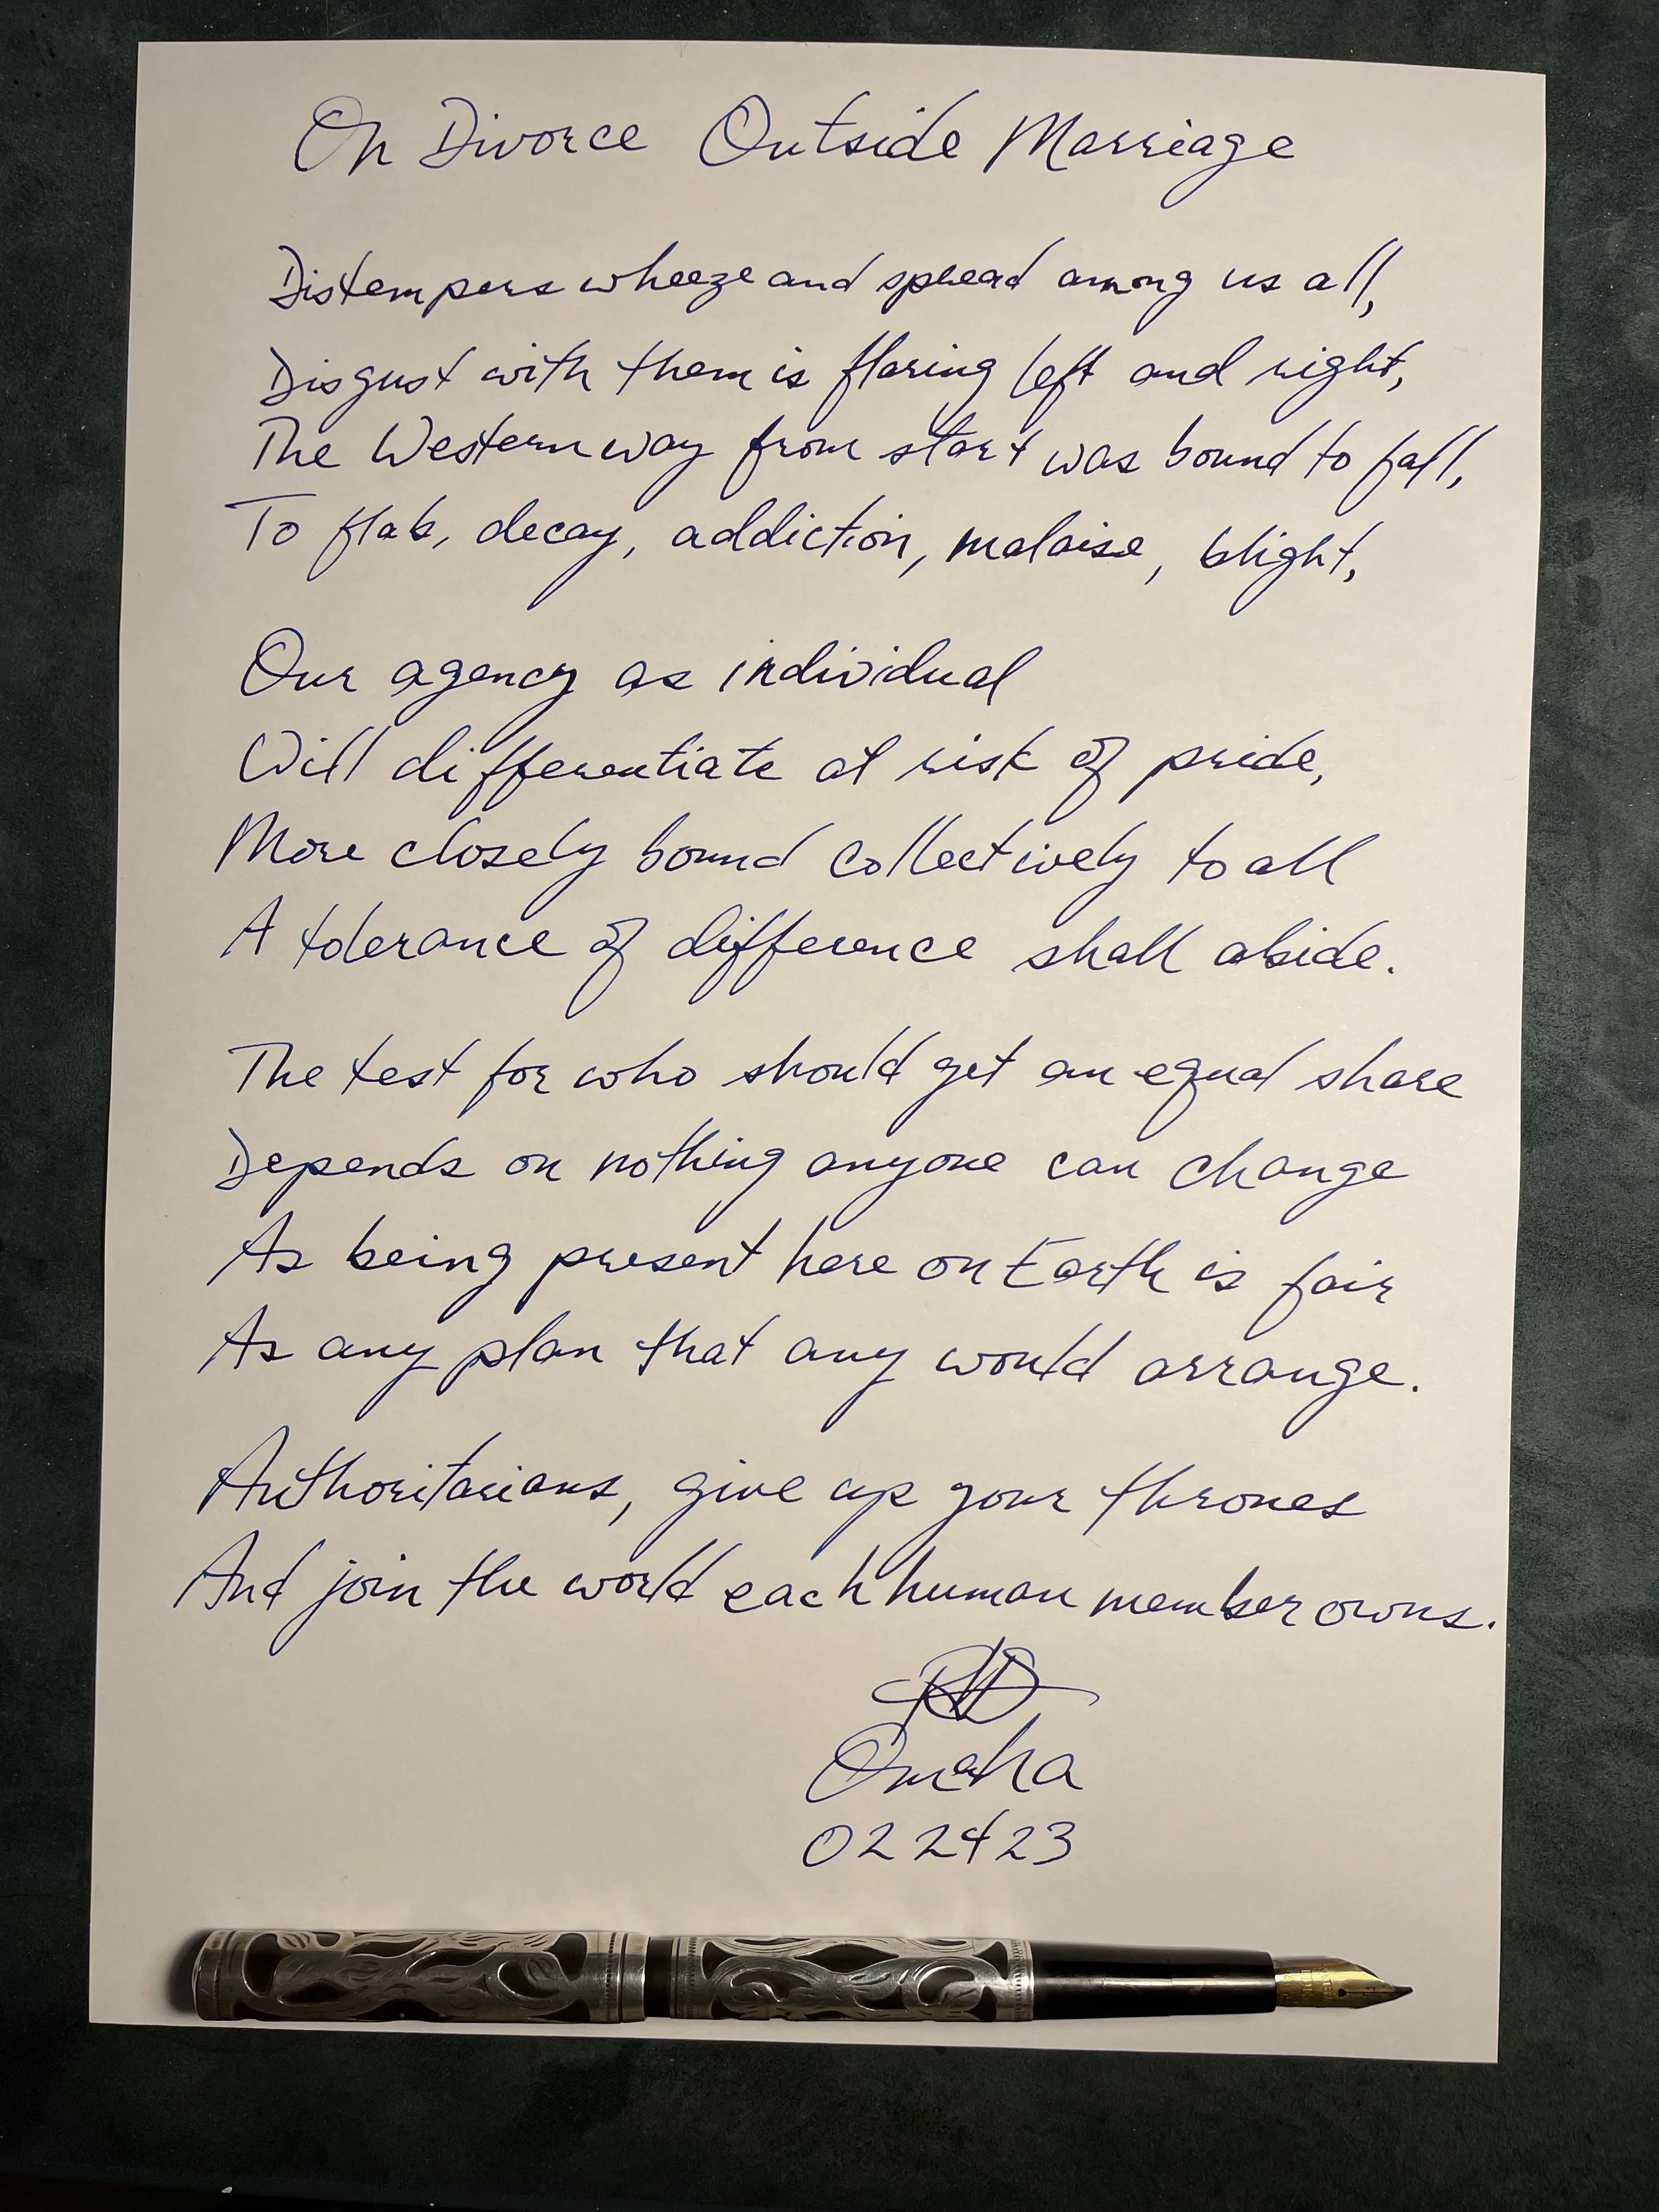 On Divorce Outside Marriage
Distempers wheeze and spread among us all,
Disgust with them is flaring left and right,
The Western way from start was bound to fall,
To flab, decay, addiction, malaise, blight,
Our agency as individual
Will differentiate at risk of pride,
More closely bound collectively to all
A tolerance of difference shall abide.
The test for who should get an equal share
Depends on nothing anyone can change
As being present here on Earth is fair
As any plan that any would arrange.
Authoritarians, give up your thrones
And join the world each human member owns.
Omaha
022423